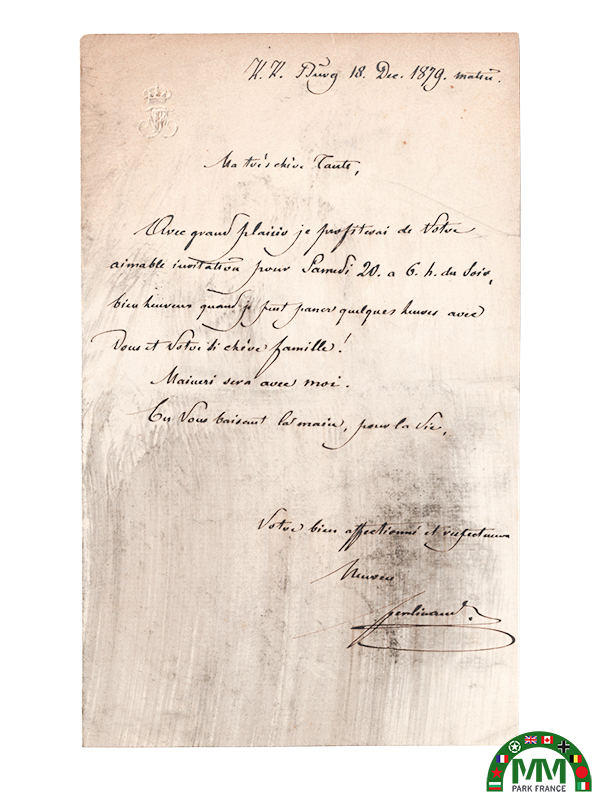 K. K. Burg 18. Dec. 1879. matin.
Ma très chère Tante,
Avec grand plaisir je profiterai de Votre
aimable invitation pour Samedi 20. a 6. h. du Soir,
bien heureux quand je puis passer quelques heures avec
Vous et Votre si chère famille!
Maineri sera avec moi.
En Vous baisant la main, pour la vie,
Votre bien affectionné et respectueux
Neveu
Ferdinand.
MM
PARK FRANCE